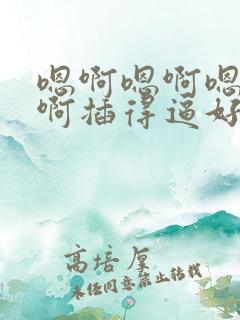 嗯啊嗯啊嗯
啊插得逼好
高培厘
未经同意禁止转载